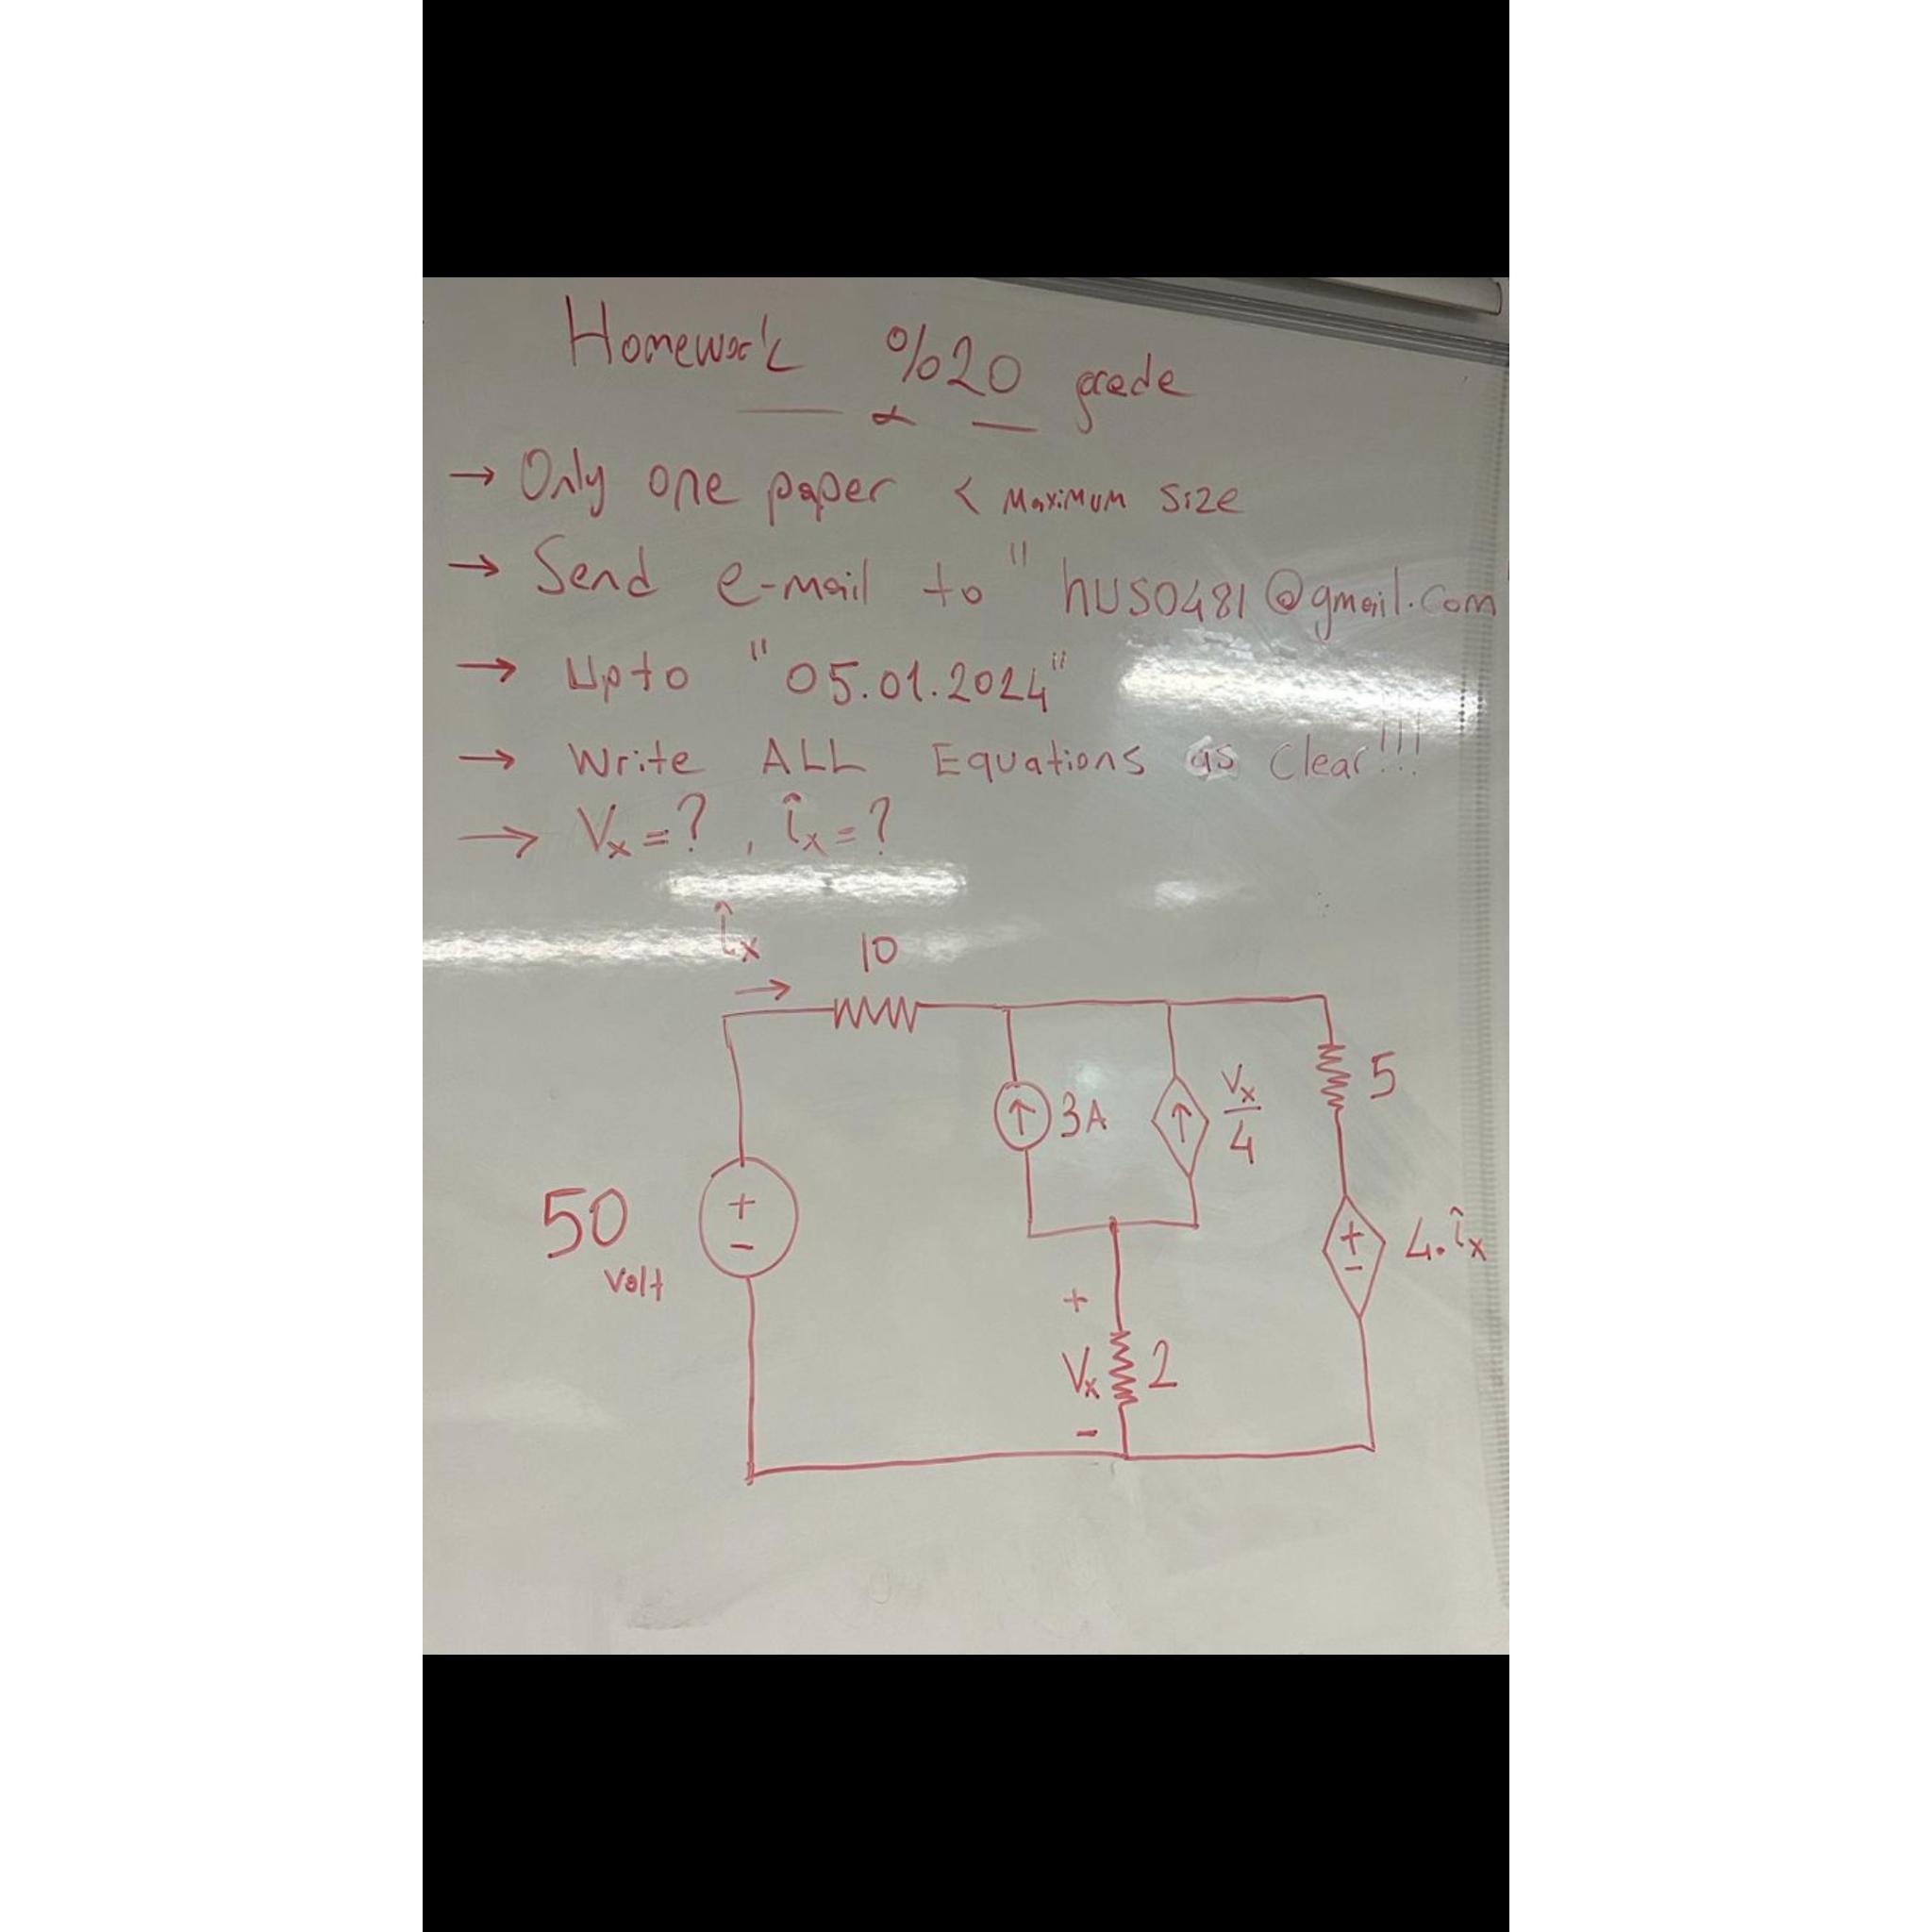 Homework %20 grade
→ Only one paper < Maximum size
→ Send e-mail to "huso481@gmail.com
→ Upto "05.01.2024"
→ Write ALL Equations as Clear!!!
→ Vx=?, îx=?
îx
10
5
3A
Vx
4
50
Volt
+
-
+
-
4.îx
+
Vx
2
-